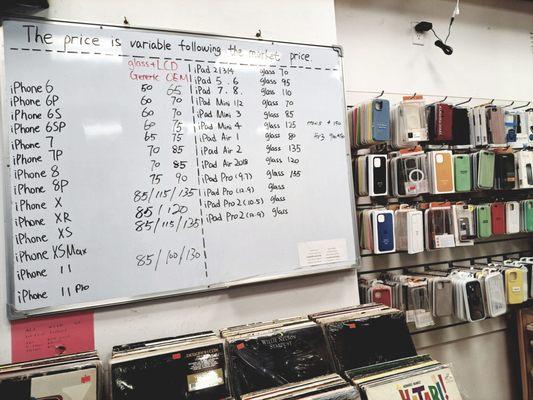 The price is variable following the market price.
glass+LCD
Generic OEM
iPhone 6 50 65
iPhone 6P 60 70
iPhone 6S 60 70
iPhone 6SP 60 75
iPhone 7 65 75
iPhone 7P 70 85
iPhone 8 70 85
iPhone 8P 75 90
iPhone X 85/115/135
iPhone XR 85/120
iPhone XS 85/115/135
iPhone XSMax
iPhone 11 85/100/130
iPhone 11 Pro
iPad 2/3/4 glass 70
iPad 5.6. glass 95
iPad 7.8. glass 110
iPad Mini 1/2 glass 70
iPad Mini 3 glass 85
iPad Mini 4 glass 125
iPad Air 1 glass 80
iPad Air 2 glass 135
iPad Air 2018 glass 120
iPad Pro (9.7) glass 155
iPad Pro (12.9) glass
iPad Pro 2 (10.5) glass
iPad Pro 2 (12.9) glass
WILLIE NELSON
STARDUST
GUITAR!